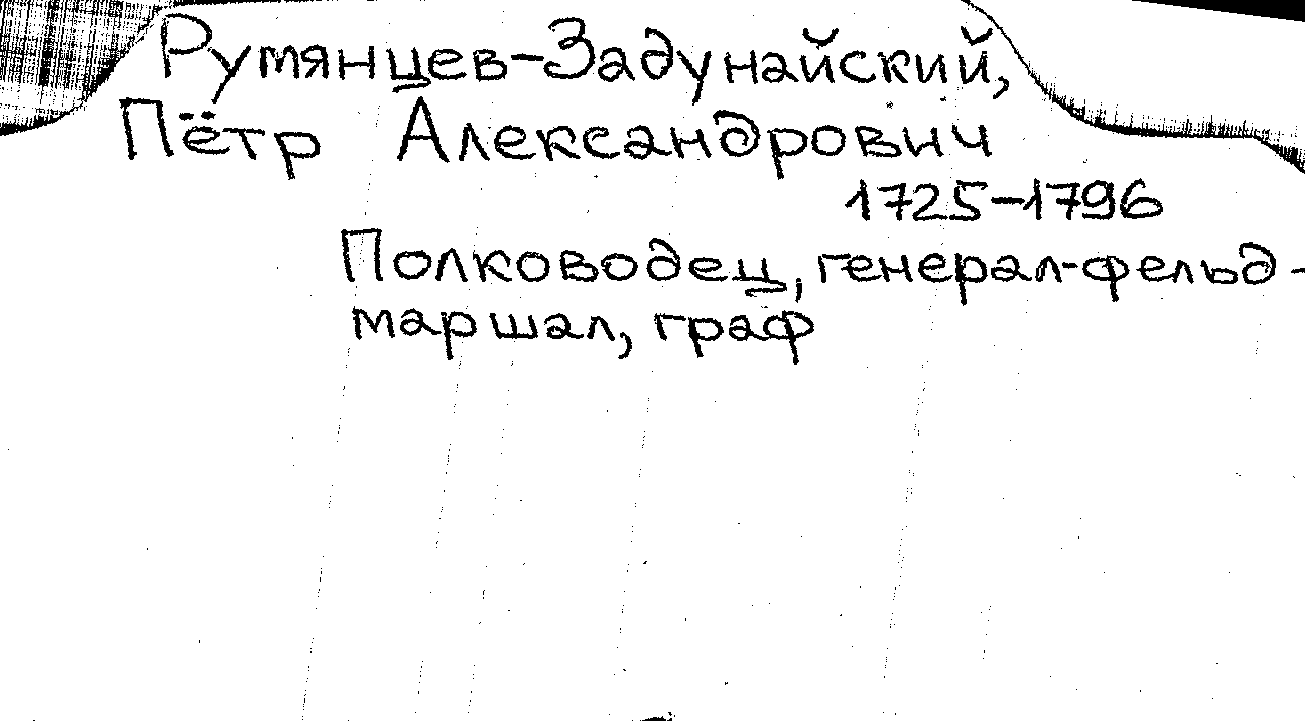 Румянцев-Задунайский,
Пётр Александрович
1725-1796
Полководец, генерал-фельд-
маршал, граф